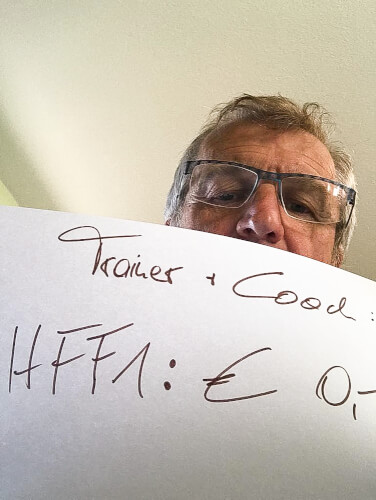 Trainer + Coach:
HFF1: € 0,-